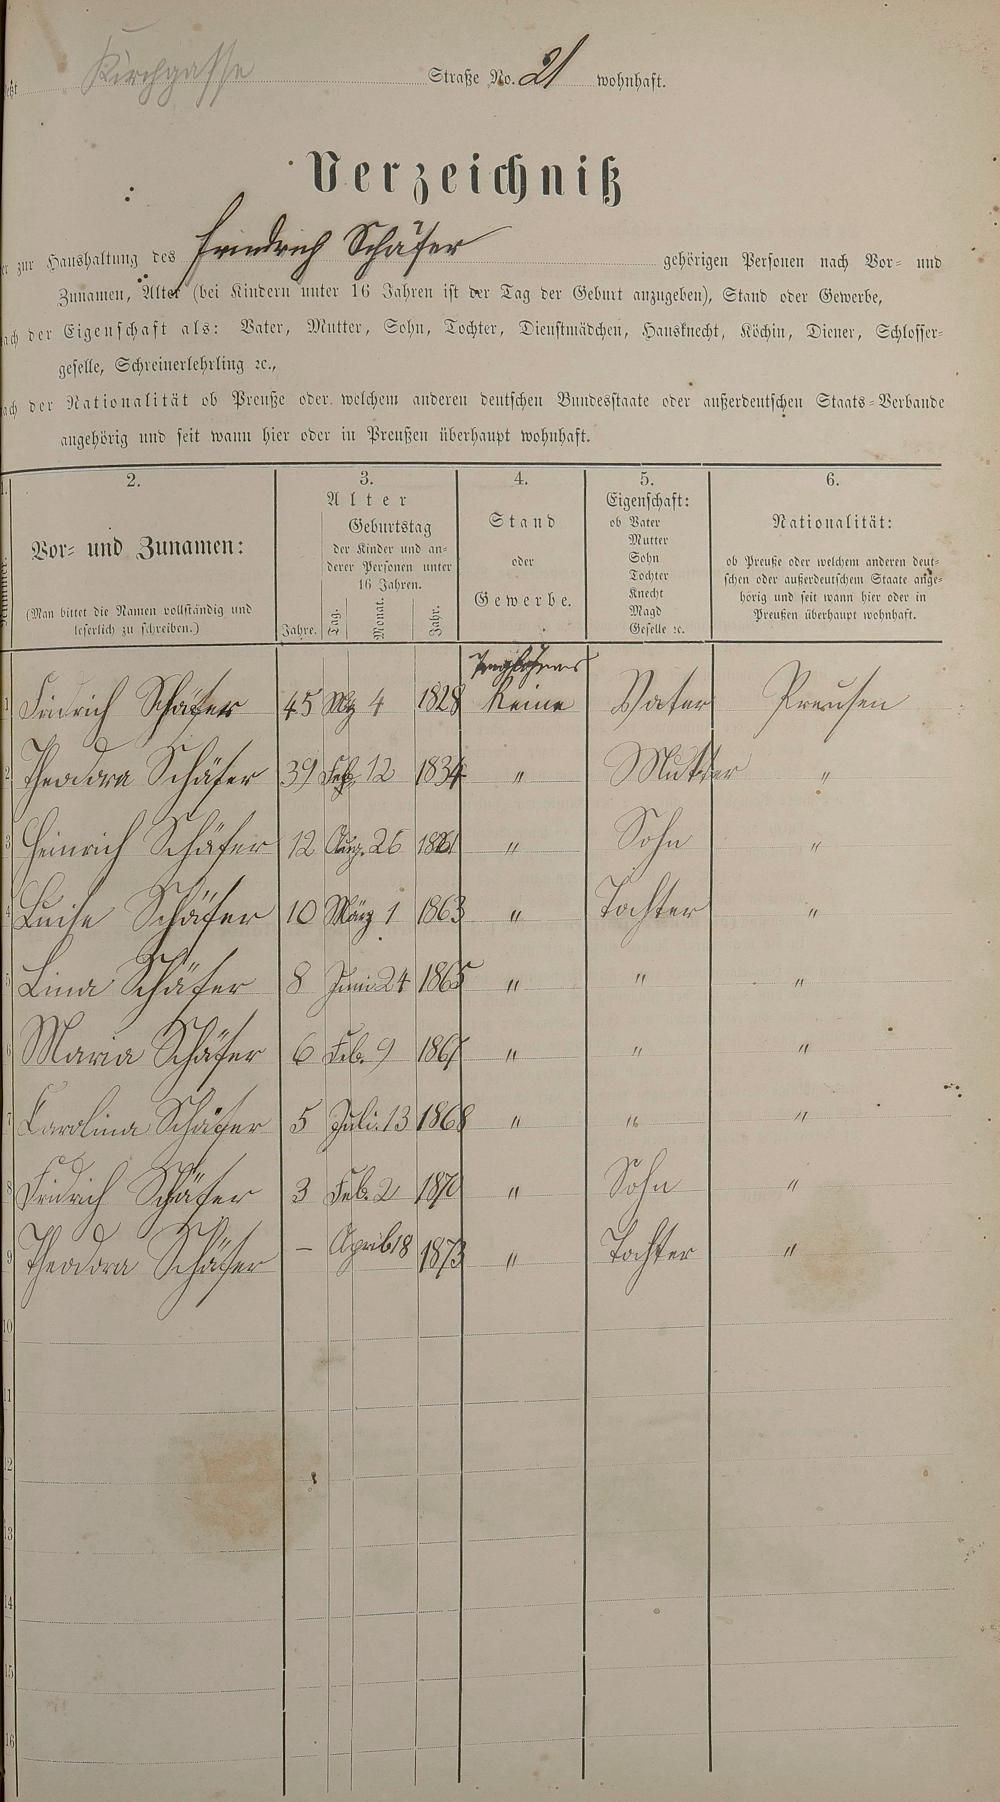 Kirchgasse Straße No. 21 wohnhaft.
Verzeichniß
zur Haushaltung des Friedrich Schäfer gehörigen Personen nach Vor- und
Zunamen, Alter (bei Kindern unter 16 Jahren ist der Tag der Geburt anzugeben), Stand oder Gewerbe,
der Eigenschaft als: Vater, Mutter, Sohn, Tochter, Dienstmädchen, Hausknecht, Köchin, Diener, Schlosser-
geselle, Schreinerlehrling ꝛc.,
der Nationalität ob Preuße oder welchem anderen deutschen Bundesstaate oder außerdeutschen Staats-Verbande
angehörig und seit wann hier oder in Preußen überhaupt wohnhaft.
1. 2. 3. 4. 5. 6.
Vor- und Zunamen:
(Man bittet die Namen vollständig und
leserlich zu schreiben.)
Alter
Geburtstag
der Kinder und an-
derer Personen unter
16 Jahren.
Jahre. Tag. Monat. Jahr.
Stand
oder
Gewerbe.
Eigenschaft:
ob Vater
Mutter
Sohn
Tochter
Knecht
Magd
Geselle ꝛc.
Nationalität:
ob Preuße oder welchem anderen deut-
schen oder außerdeutschem Staate ange-
hörig und seit wann hier oder in
Preußen überhaupt wohnhaft.
1 Fridrich Schäfer 45 Mz 4 1828 Keine Vater Preusen
2 Theodora Schäfer 39 Feb. 12 1834 " Mutter "
3 Heinrich Schäfer 12 Aug. 26 1861 " Sohn "
4 Luise Schäfer 10 März 1 1863 " Tochter "
5 Lina Schäfer 8 Juni 24 1865 " " "
6 Maria Schäfer 6 Feb. 9 1867 " " "
7 Carolina Schäfer 5 Juli. 13 1868 " " "
8 Fridrich Schäfer 3 Feb. 2 1870 " Sohn "
9 Theodora Schäfer – April 18 1873 " Tochter "
10
11
12
13
14
15
16